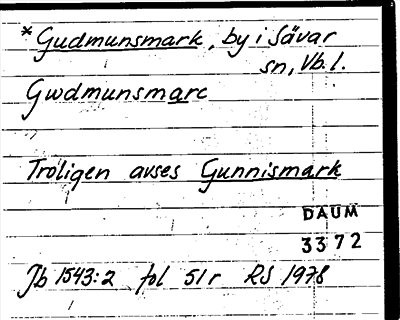 *Gudmunsmark, by i Sävar
sn, Vb. l.
Gwdmunsmarc
Troligen avses Gunnismark
DAUM
3372
Jb 1543:2 fol 51r RS 1978